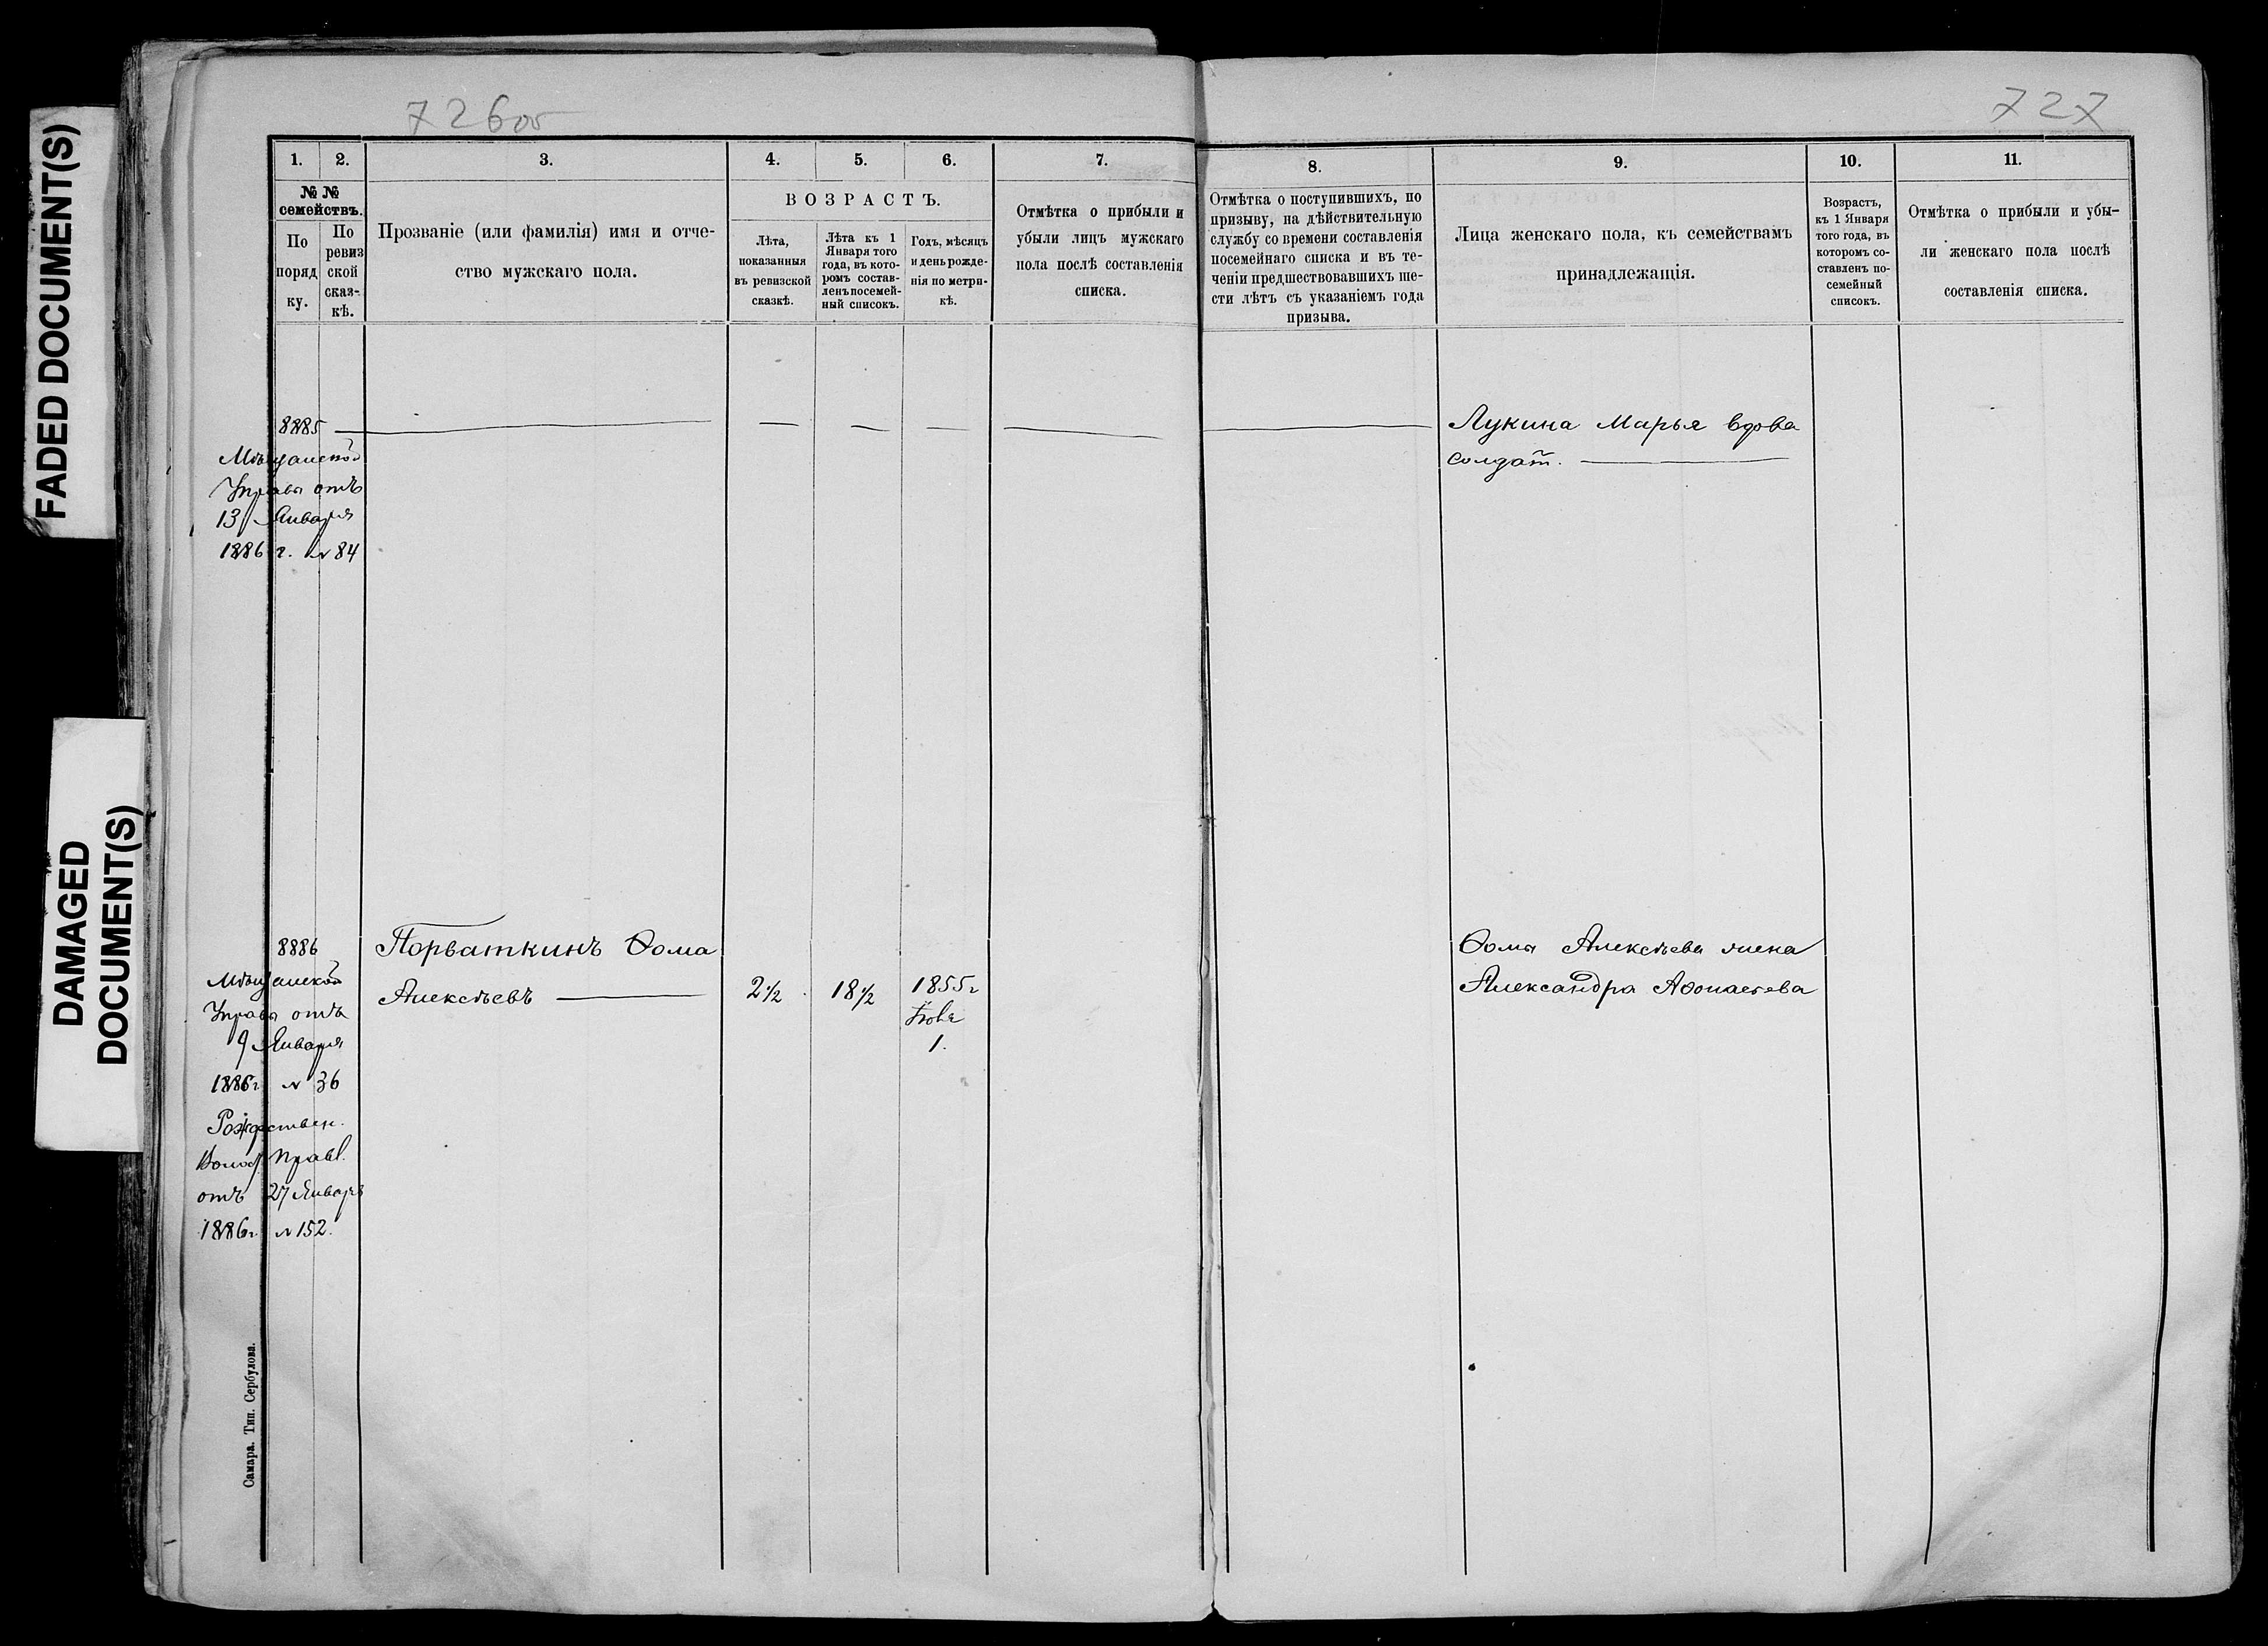 FADED DOCUMENT(S)
DAMAGED
DOCUMENT(S)
726об
727
1.
2.
3.
4.
5.
6.
7.
8.
9.
10.
11.
№ №
семействъ.
По
поряд
ку.
По
ревиз
ской
сказ-
кѣ.
Прозваніе (или фамилія) имя и отче-
ство мужскаго пола.
ВОЗРАСТЪ.
Лѣта,
показанныя
въ ревизской
сказкѣ.
Лѣта къ 1
Января того
года, въ кото-
ромъ состав-
ленъ посемей-
ный списокъ.
Годъ, мѣсяцъ
и день рожде-
нія по метри-
кѣ.
Отмѣтка о прибыли и
убыли лицъ мужскаго
пола послѣ составленія
списка.
Отмѣтка о поступившихъ, по
призыву, на дѣйствительную
службу со времени составленія
посемейнаго списка и въ те-
ченіи предшествовавшихъ ше-
сти лѣтъ съ указаніемъ года
призыва.
Лица женскаго пола, къ семействамъ
принадлежащія.
Возрастъ,
къ 1 Января
того года, въ
которомъ со-
ставленъ по-
семейный
списокъ.
Отмѣтка о прибыли и убы-
ли женскаго пола послѣ
составленія списка.
8885
Мѣщанской
Управы отъ
13 Января
1886 г. № 84
Лукина Марья вдова
солдат.
8886
Мѣщанской
Управы отъ
9 Января
1886 г. № 36
Рождествен.
Волос. Правл.
отъ 27 Января
1886 г. № 152.
Порваткинъ Ѳома
Алексѣевъ
2½
18½
1855 г
1.
Ѳомы Алексѣева жена
Александра Аѳонасьева
Самара. Тип. Сербулова.